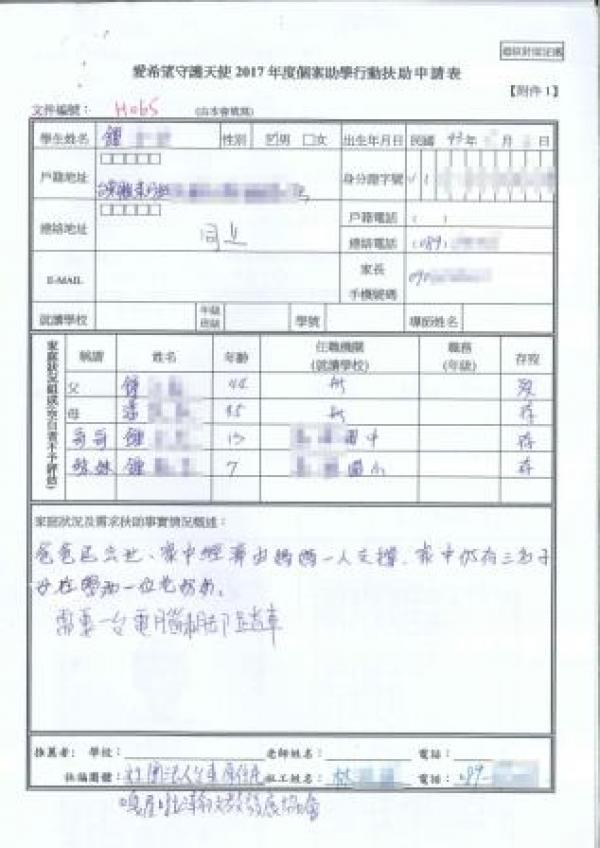 愛希望守護天使 2017 年度個案助學行動扶助申請表
【附件 1】
文件編號: H065 (由本會填寫)
學生姓名 鍾 性別 ☑男 □女 出生年月日 民國 93 年 月 日
戶籍地址 身分證字號
戶籍電話 ( )
聯絡地址 同上 聯絡電話 (089)
E-MAIL 家長手機號碼 090
就讀學校 年級班級 學號 導師姓名
家庭狀況組成(空白者不予評估)
稱謂 姓名 年齡 任職機關(就讀學校) 職務(年級) 存歿
父 鍾 44 無 歿
母 潘 35 無 存
哥哥 鍾 13 國中 存
妹妹 鍾 7 國小 存
家庭狀況及需求扶助事實情況概述:
爸爸已去世、家中經濟由媽媽一人支撐,家中仍有三名子
女在學和一位老奶奶。
需要一台電腦和腳踏車
推薦者: 學校: 老師姓名: 電話:
社福團體: 社團法人台東縣 社工姓名: 林 電話: 089-
文教發展協會